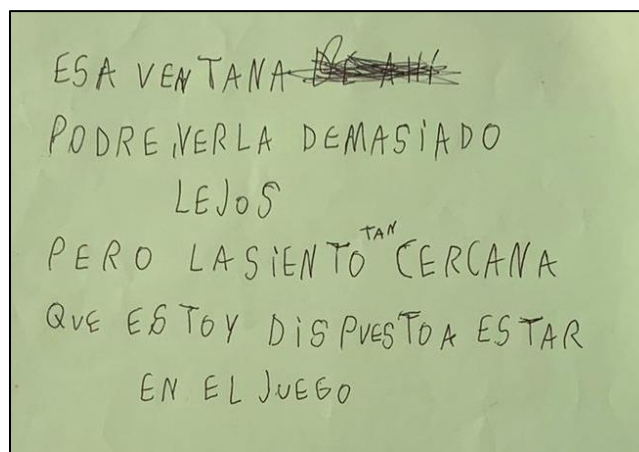 ESA VENTANA
PODRE VERLA DEMASIADO
LEJOS
PERO LA SIENTO TAN CERCANA
QUE ESTOY DISPUESTO A ESTAR
EN EL JUEGO